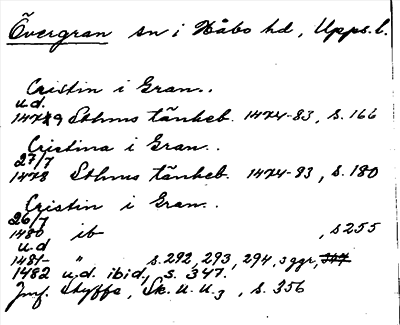 Övergran sn i Håbo hd, Upps. l.
Cristin i Gran..
u.d.
1479 Sthms tänkeb. 1474-83, s. 166
Cristina i Gran..
27/7
1478 Sthms tänkeb. 1474-83, s. 180
Cristin i Gran..
26/7
1480 ib , s 255
u.d
1481- " s. 292, 293, 294, 3 ggr, 347
1482 u.d. ibid., s. 347.
Jmf. Styffe, Sk. U. U. 3, s. 356